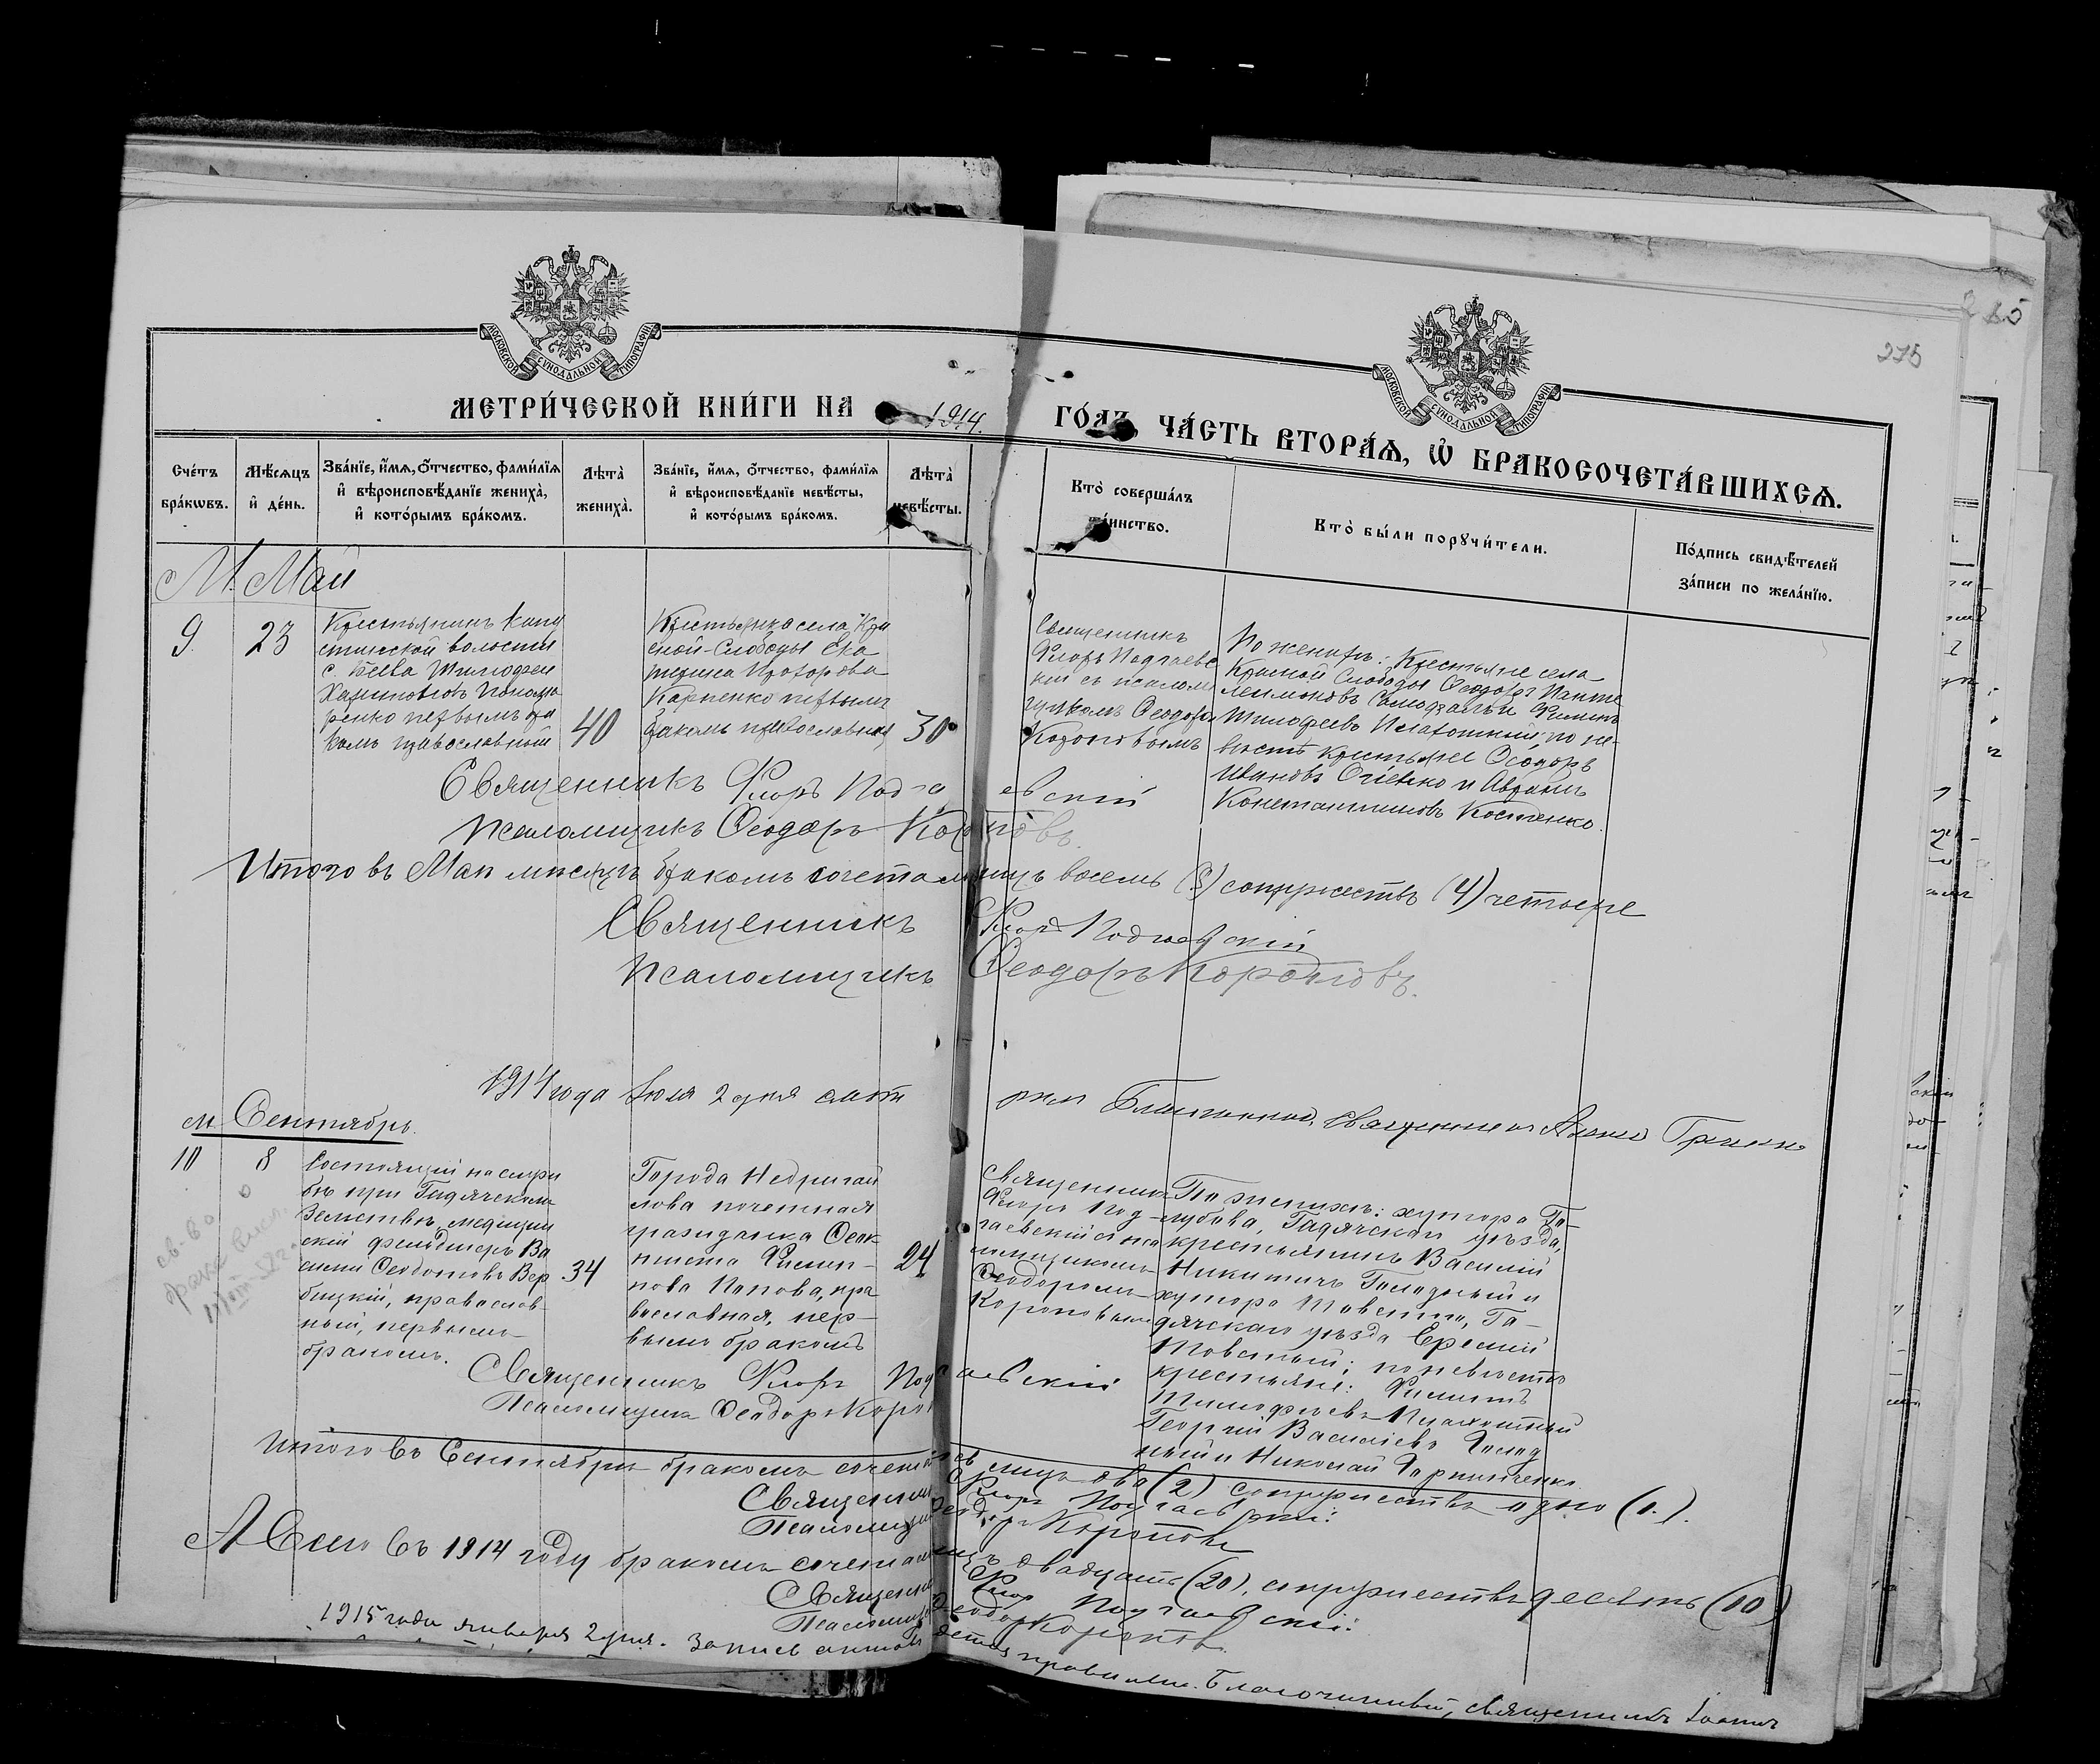 275
МОСКОВСКОЙ СУНОДАЛЬНОЙ ТИПОГРАФІИ
МОСКОВСКОЙ СУНОДАЛЬНОЙ ТИПОГРАФІИ
МЕТРИ́ЧЕСКОЙ КНИ́ГИ НА 1914. ГО́ДЪ ЧА́СТЬ ВТОРА́Ѧ, Ѡ҆ БРАКОСОЧЕТА́ВШИХСѦ.
Сче́тъ
бра́кѡвъ.
Мѣ́сѧцъ
и҆ де́нь.
Зва́нїе, и҆́мѧ, ѻ҆́тчество, фами́лїѧ
и҆ вѣроисповѣ́данїе жениха̀,
и҆ кото́рымъ бра́комъ.
Лѣ́та̀
жениха̀.
Зва́нїе, и҆́мѧ, ѻ҆́тчество, фами́лїѧ
и҆ вѣроисповѣ́данїе невѣ́сты,
и҆ кото́рымъ бра́комъ.
Лѣ́та̀
невѣ́сты.
Кто̀ соверша́лъ
та́инство.
Кто̀ бы́ли порꙋчи́тели.
По́дпись свидѣ́телей
за́писи по жела́нїю.
М. Май
9.
23
Крестьянинъ
волости
с. Тимофей
первымъ бра
комъ православный
40
Крестьянка села Кра
сной-Слободы Ека
терина Прохорова
Карпенко первымъ
бракомъ православная
30
Священникъ
Флоръ Подгаевс
кій съ псалом
щикомъ Ѳеодоромъ
Короповымъ
По женихѣ: Крестьяне села
Красной Слободы Ѳеодоръ Панте
леимоновъ и Филиппъ
Тимофеевъ по не-
вѣстѣ крестьяне Ѳеодоръ
Ивановъ и Аврамъ
Константиновъ Костенко.
Священникъ Флоръ Подгаевскій
Псаломщикъ Ѳеодоръ Короповъ.
Итого въ Маѣ мѣсяцѣ бракомъ сочеталось лицъ восемь (8) супружествъ (4) четыре
Священникъ Флоръ Подгаевскій
Псаломщикъ Ѳеодоръ Короповъ.
1914 года Іюля 2 дня Благочинный, священникъ
м. Сентябрь.
10
8
Состоящій на служ
бѣ при Гадячскомъ
Земствѣ медицин
скій фельдшеръ Ва
силій Ѳеодотовъ Вер
бицкій, православ-
ный, первымъ
бракомъ.
34
Города Недригай
лова почетная
гражданка Ѳеок
тиста Филип-
пова Попова, пра
вославная, пер-
вымъ бракомъ
24
Священникъ
Флоръ Под-
гаевскій съ пса
ломщикомъ
Ѳеодоромъ
Коропововымъ
По женихѣ: хутора Го-
лубова, Гадячскаго уѣзда,
крестьянинъ Василій
Никитичъ и
хутора Га-
дячскаго уѣзда Еремій
Товстый; по невѣстѣ
крестьяне: Филиппъ
Тимофеевъ
Георгій Василіевъ
и Николай
св-во
Священникъ Флоръ Подгаевскій
Псаломщикъ Ѳеодоръ Короповъ
Итого въ Сентябрѣ бракомъ сочеталось лицъ два (2) супружествъ одно (1.).
Священникъ Флоръ Подгаевскій:
Псаломщикъ Ѳеодоръ Короповъ
А Всего въ 1914 году бракомъ сочеталось лицъ двадцать (20), супружествъ десять (10)
Священникъ Флоръ Подгаевскій:
Псаломщикъ Ѳеодоръ Короповъ.
1915 года января 2 дня. Запись актовъ ведется правильно. Благочинный, священникъ Іоаннъ